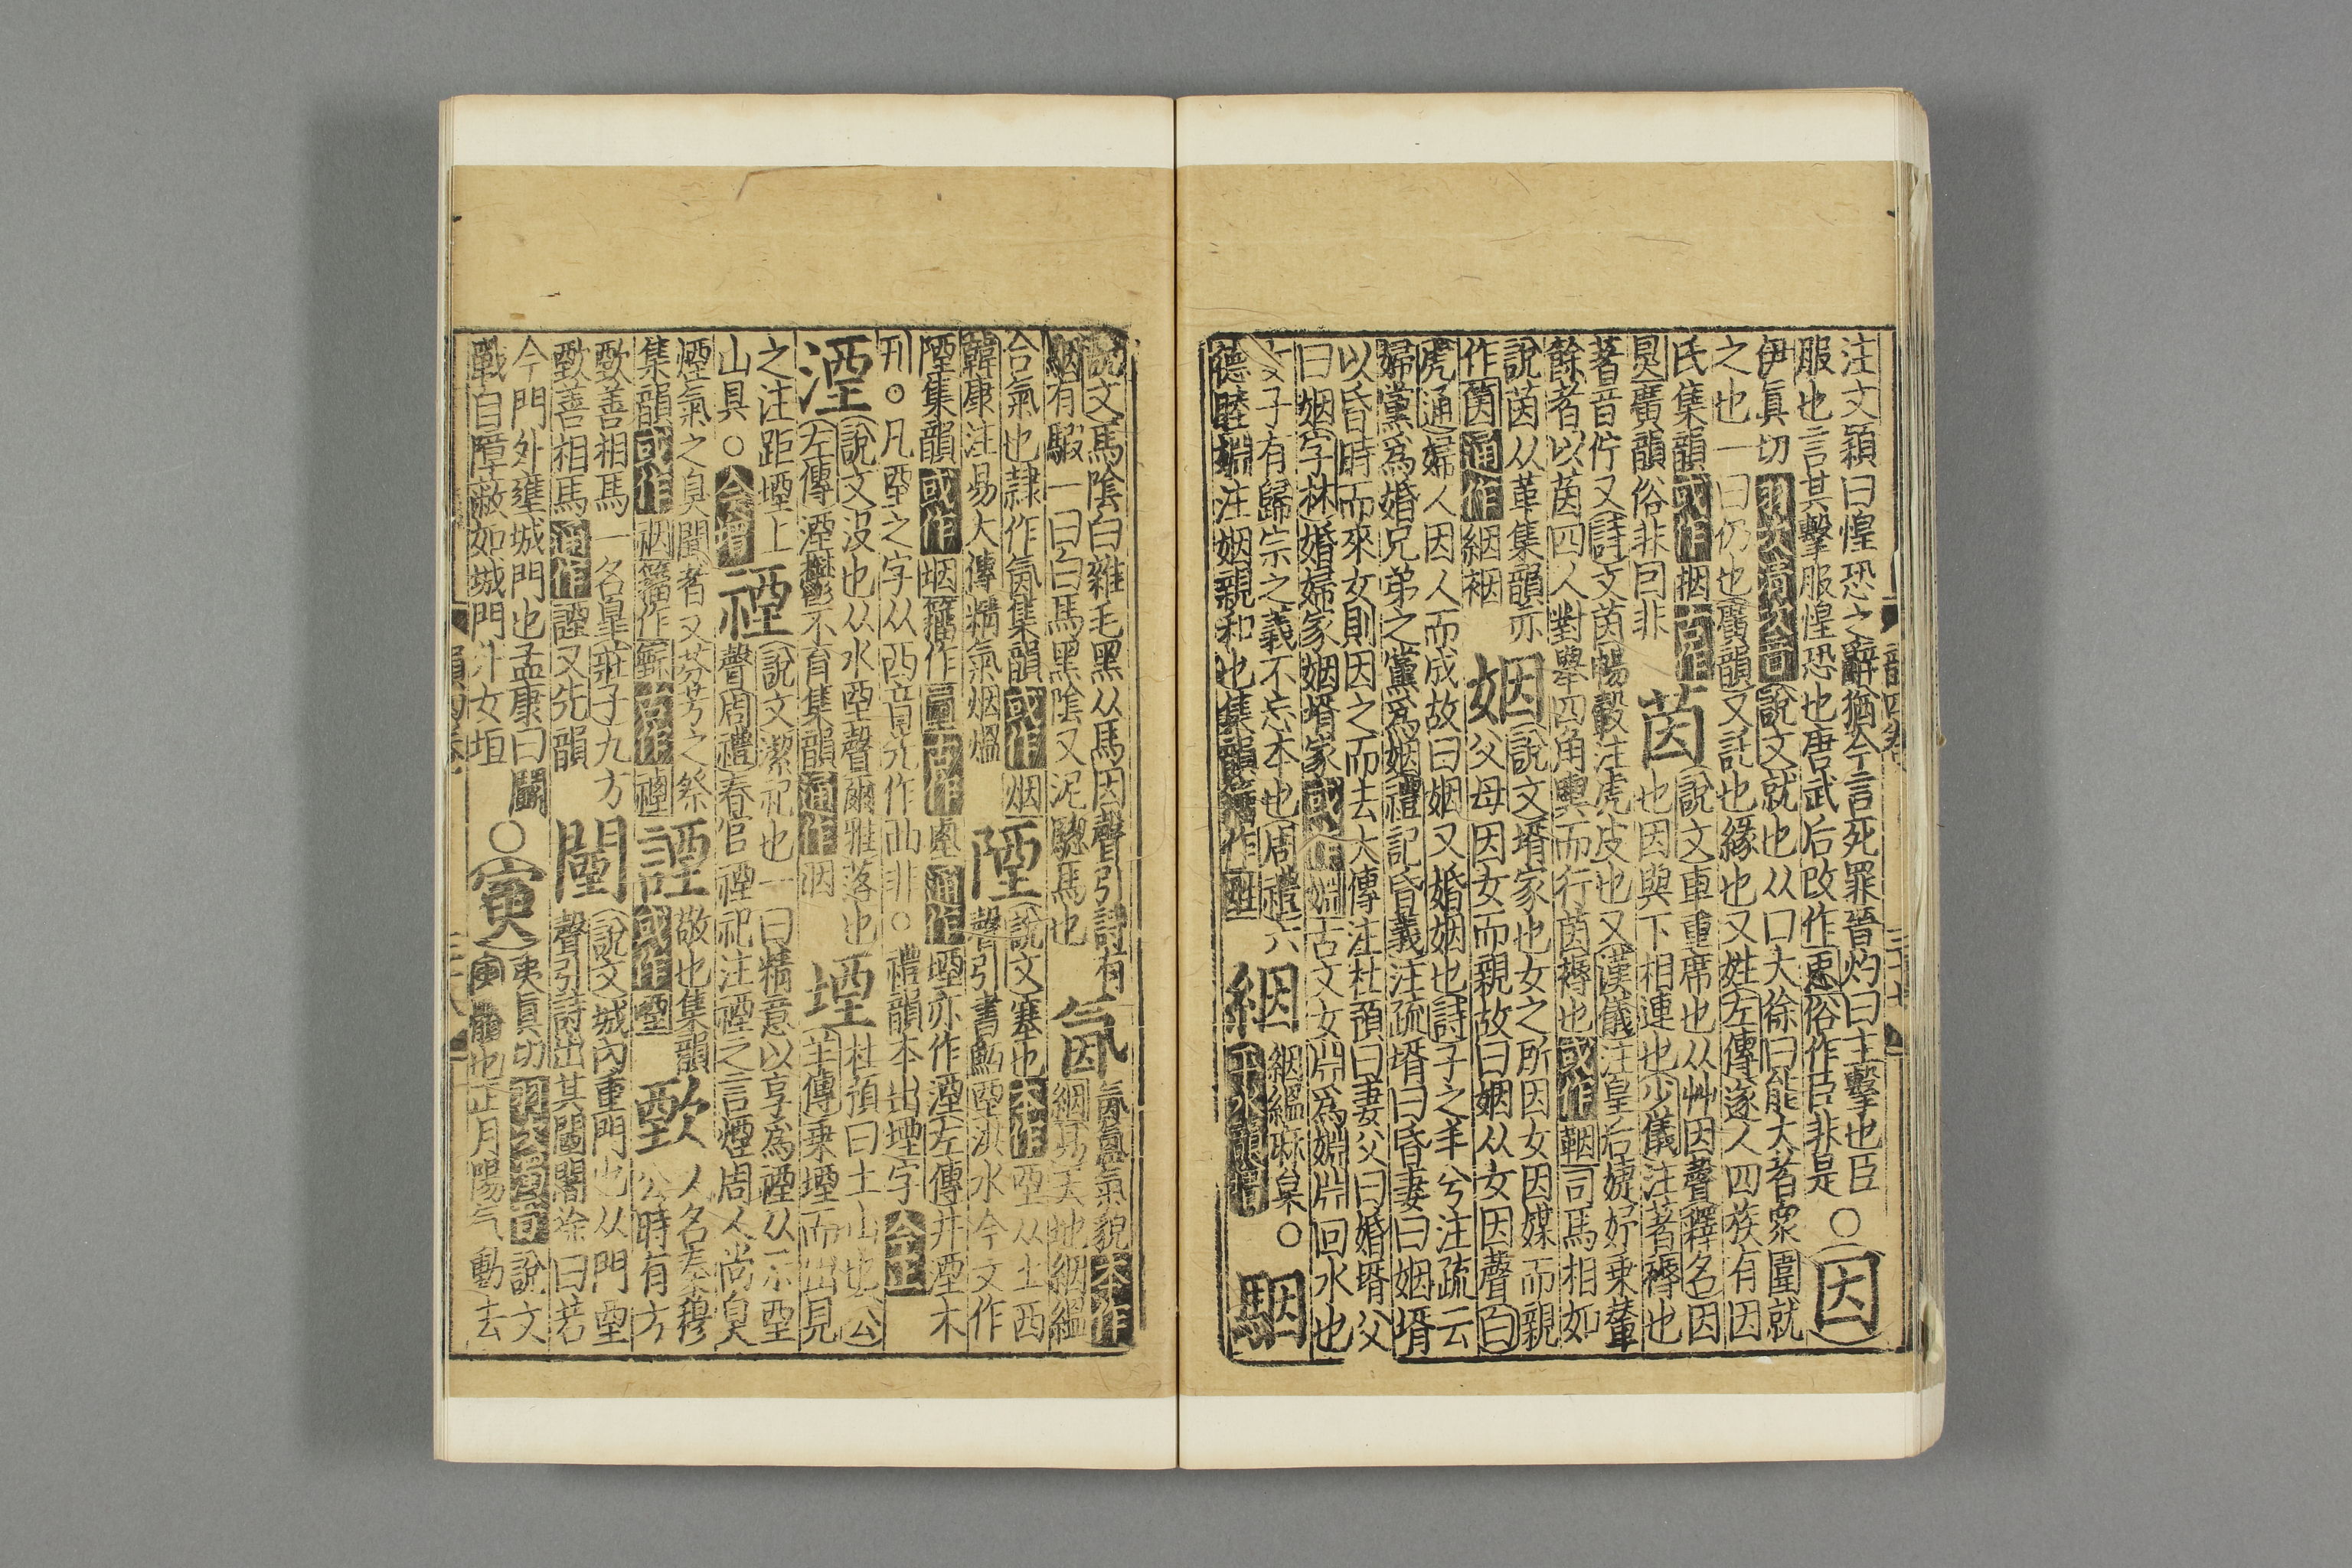 注文穎曰惶恐之辭猶今言死罪晉灼曰主擊也臣
服也言其擊服惶恐也唐武后改作𢘑俗作臣非是○因
伊眞切說文就也从口大徐曰能大者衆圍就
之也一曰仍也廣韻又託也緣也又姓左傳遂人四族有因
氏集韻或作捆古作
茵說文車重席也从艸因聲釋名因
也因與下相連也少儀注著褥也
廣韻俗非曰非
著音佇又詩文茵暢轂注虎皮也又漢儀注皇后婕妤乗輦
餘者以茵四人對舉四角輿而行茵褥也或作鞇司馬相如
說茵从革集韻亦
作茵通作絪裀
姻說文壻家也女之所因女因媒而親
父母因女而親故曰姻从女因聲白
虎通婦人因人而成故曰姻又婚姻也詩子之丰兮注疏云
婦黨爲婚兄弟之黨爲姻禮記昏義注疏壻曰昏妻曰姻壻
以昏時而來女則因之而去大傳注杜預曰妻父曰婚壻父
曰姻字林婚婦家姻壻家或作婣古文女𣶒爲婣𣶒回水也
女子有歸宗之義不忘本也周禮六
德睦婣注姻親和也集韻籀作
絪絪縕麻枲○
平水韻增
駰
說文馬陰白雜毛黑从馬因聲引詩有
駰有騢一曰白馬黑陰又泥驄馬也
氤氤氳氣貌本作
絪易天地絪縕
合氣也隷作氤集韻或作烟
韓康注易大傳精氣烟熅
陻說文塞也本作垔从土西
聲引書鯀垔洪水今文作
陻集韻或作垔籀作𡎱古作通作堙亦作湮左傳井湮木
刊○凡垔之字从西音先作覀非○禮韻本出堙字今正
湮說文没也从水垔聲爾雅落也
左傳湮鬱不育集韻通作洇
堙杜預曰土山也公
羊傳乗堙而出見
之注距堙上
山具○今增
禋說文潔祀也一曰精意以享爲禋从示垔
聲周禮春官禋祀注禋之言煙周人尚臭
煙氣之臭聞者又芬芳之祭
集韻或作䄄籀作𩰲古作禋
諲敬也集韻
或作
㱃人名秦穆
公時有方
㱃善相馬一名皐莊子九方
㱃善相馬通作諲又先韻
闉說文城內重門也从門垔
聲引詩出其闉闍徐曰若
今門外壅城門也孟康曰闉
戰自障蔽如城門汁女垣
○寅夷眞切說文
髕也正月陽气動去